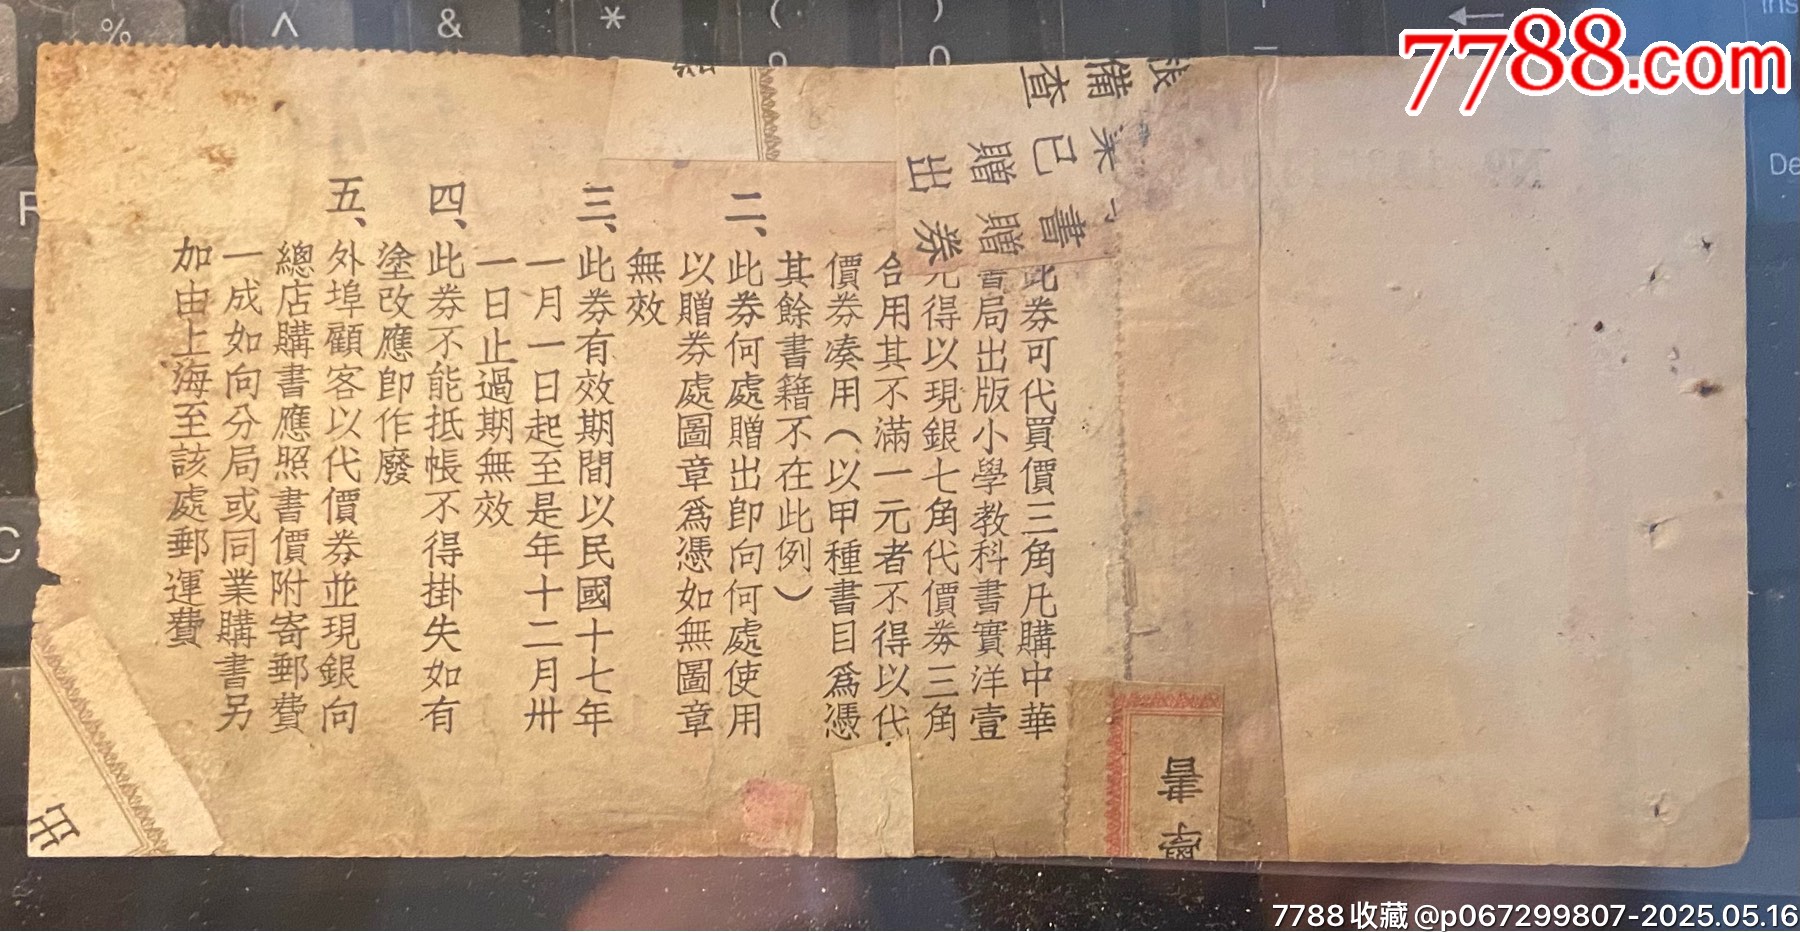 7788.com
此券可代買價三角凡購中華
書局出版小學教科書實洋壹
元得以現銀七角代價券三角
合用其不滿一元者不得以代
價券湊用(以甲種書目爲憑
其餘書籍不在此例)
二、此券何處贈出卽向何處使用
以贈券處圖章爲憑如無圖章
無效
三、此券有效期間以民國十七年
一月一日起至是年十二月卅
一日止過期無效
四、此券不能抵帳不得掛失如有
塗改應卽作廢
五、外埠顧客以代價券並現銀向
總店購書應照書價附寄郵費
一成如向分局或同業購書另
加由上海至該處郵運費
備查
已書
贈贈
出券
% ^ & * ( )
9 0
R
C
Ins
De
7788收藏@p067299807-2025.05.16